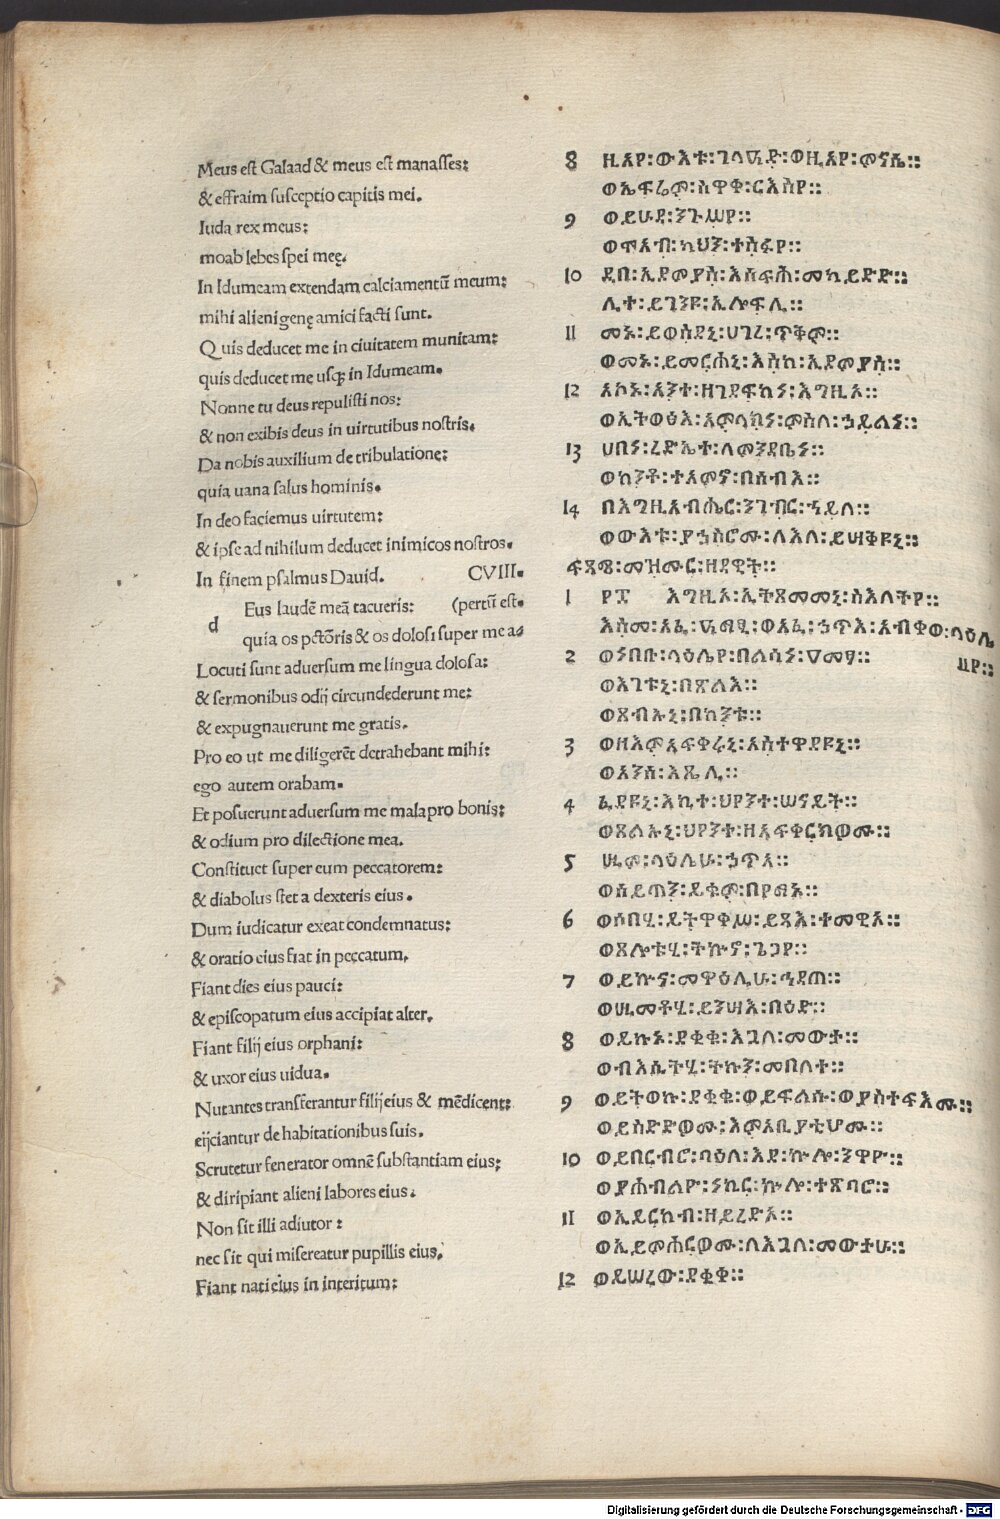 Meus est Galaad & meus est manasses:
& effraim susceptio capitis mei.
Iuda rex meus:
moab lebes spei meę.
In Idumeam extendam calciamentū meum:
mihi alienigenę amici facti sunt.
Quis deducet me in ciuitatem munitam:
quis deducet me usq; in Idumeam.
Nonne tu deus repulisti nos:
& non exibis deus in uirtutibus nostris.
Da nobis auxilium de tribulatione:
quia uana salus hominis.
In deo faciemus uirtutem:
& ipse ad nihilum deducet inimicos nostros.
In finem psalmus Dauid. CVIII.
d Eus laudē meā tacueris: (pertū est.
quia os pctōris & os dolosi super me a-
Locuti sunt aduersum me lingua dolosa:
& sermonibus odij circundederunt me:
& expugnauerunt me gratis.
Pro eo ut me diligerēt detrahebant mihi:
ego autem orabam.
Et posuerunt aduersum me mala pro bonis:
& odium pro dilectione mea.
Constituet super eum peccatorem:
& diabolus stet a dexteris eius.
Dum iudicatur exeat condemnatus:
& oratio eius fiat in peccatum.
Fiant dies eius pauci:
& episcopatum eius accipiat alter.
Fiant filij eius orphani:
& uxor eius uidua.
Nutantes transferantur filij eius & mēdicent:
eijciantur de habitationibus suis.
Scrutetur fenerator omnē substantiam eius:
& diripiant alieni labores eius.
Non sit illi adiutor:
nec sit qui misereatur pupillis eius.
Fiant nati eius in interitum:
8 ዚአየ፡ውእቱ፡ገላዓድ፡ወዚአየ፡ምናሴ።
ወኤፍሬም፡ጸዋቁ፡ርእስየ።
9 ወይሁዳ፡ንጉሥየ።
ወሞአብ፡ካህን፡ተስፋየ።
10 ዲበ፡ኢዶምያስ፡እሰፍሕ፡መኪይድድ።
ሊተ፡ይገንዩ፡ኢሎፍሊ።
11 መኑ፡ይወስደኒ፡ሀገረ፡ጥቅም።
ወመኑ፡ይመርሐኒ፡እስከ፡ኢዶምያስ።
12 አኮኑ፡አንተ፡ዘገደፍከነ፡እግዚአ።
ወኢትወፅእ፡አምላክነ፡ምስለ፡ኃይልነ።
13 ሀበነ፡ረድኤተ፡ለምንዳቤነ።
ወከንቶ፡ተአምኖ፡በሰብእ።
14 በእግዚአብሔር፡ንገብር፡ኀይለ።
ወውእቱ፡ያኀስሮሙ፡ለእለ፡ይሣቅዩኒ።
፻፰፡መዝሙር፡ዘዳዊት።
1 እግዚአ፡ኢትጸመመኒ፡ስእለትየ።
እስመ፡አፈ፡ዓማፂ፡ወአፈ፡ኃጥእ፡አብቀወ፡ላዕሌ
2 ወነበቡ፡ላዕሌየ፡በልሳነ፡ዐመፃ። ዪየ።
ወአገቱኒ፡በጽልእ።
ወጸብኡኒ፡በከንቱ።
3 ወዘእምአፍቀሩኒ፡አስተዋደዩኒ።
ወአንሰ፡እጼሊ።
4 ፈደዩኒ፡እኪተ፡ህየንተ፡ሠናይት።
ወጸልኡኒ፡ህየንተ፡ዘአፍቀርክዎሙ።
5 ሢም፡ላዕሌሁ፡ኃጥአ።
ወሰይጣን፡ይቁም፡በየማኑ።
6 ወሶበሂ፡ይትዋቀሥ፡ይጻእ፡ተመዊኦ።
ወጸሎቱሂ፡ትኩኖ፡ጌጋየ።
7 ወይኩና፡መዋዕሊሁ፡ኅዳጠ።
ወሢመቶሂ፡ይንሣእ፡ባዕድ።
8 ወይኩኑ፡ደቂቁ፡እጓለ፡መውታ።
ወብእሲትሂ፡ትኩን፡መበለተ።
9 ወይትወኩ፡ደቂቁ፡ወይፍልሱ፡ወያስተፍእሙ።
ወይስድድዎሙ፡እምአቢያቲሆሙ።
10 ወይበርብሮ፡ባዕለ፡እዳ፡ኵሎ፡ንዋዮ።
ወያሕብልዮ፡ነኪር፡ኵሎ፡ተጽባሮ።
11 ወኢይርከብ፡ዘይረድኦ።
ወኢይምሕርዎሙ፡ለእጓለ፡መውታሁ።
12 ወይሠረው፡ደቂቁ።
Digitalisierung gefördert durch die Deutsche Forschungsgemeinschaft - DFG